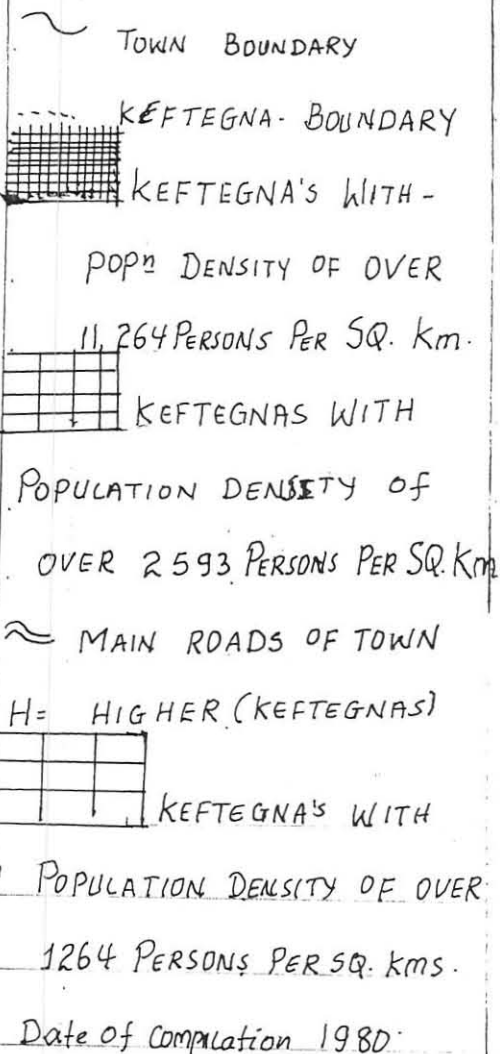 TOWN BOUNDARY
KEFTEGNA- BOUNDARY
KEFTEGNA'S WITH-
POPn DENSITY OF OVER
11,264 PERSONS PER SQ. Km.
KEFTEGNAS WITH
POPULATION DENSITY of
OVER 2593 PERSONS PER SQ. Km
MAIN ROADS OF TOWN
H= HIGHER (KEFTEGNAS)
KEFTEGNA'S WITH
POPULATION DENSITY OF OVER
1264 PERSONS PER SQ. kms.
Date of Compilation 1980.